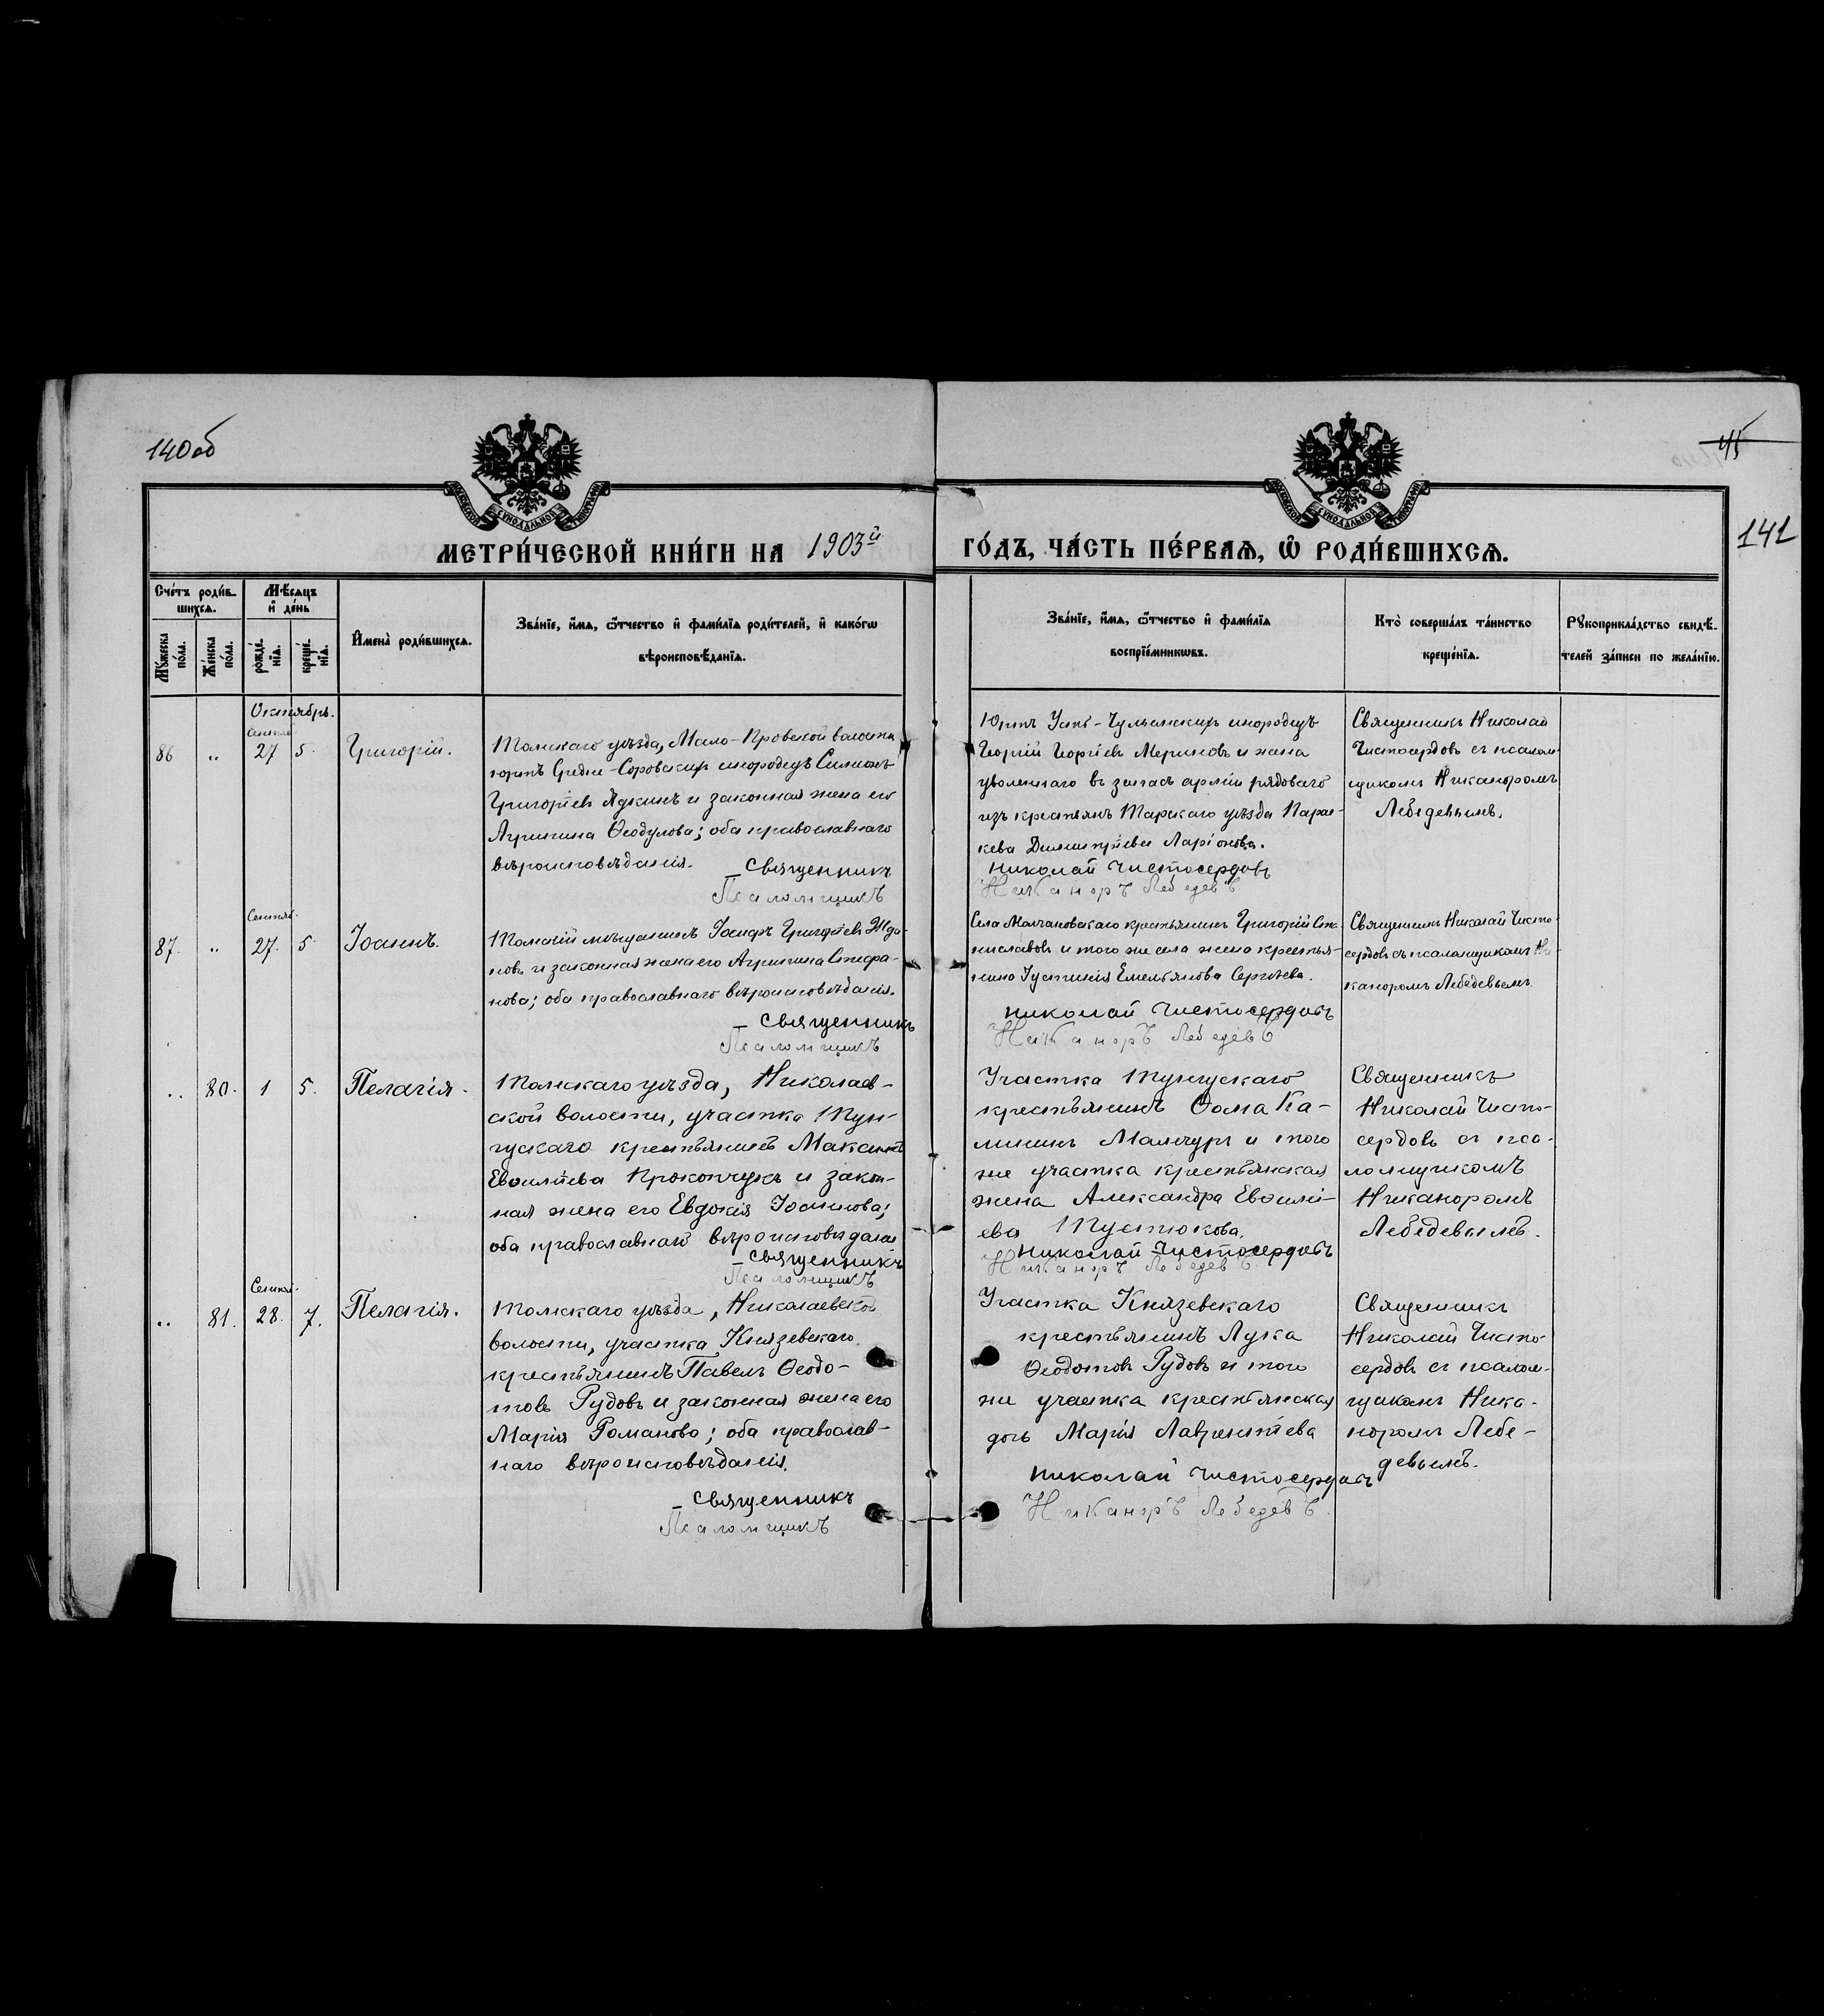 140об
45
141
МОСКОВСКОЙ СѴНОДАЛЬНОЙ ТИПОГРАФІИ
МОСКОВСКОЙ СѴНОДАЛЬНОЙ ТИПОГРАФІИ
МЕТРИ́ЧЕСКОЙ КНИ́ГИ НА 1903й ГО́ДЪ, ЧА́СТЬ ПЕ́РВАѦ, Ѽ РОДИ́ВШИХСѦ.
Сче́тъ роди́в-
шихсѧ.
Мѣ́сяцъ
и҆ де́нь
Мꙋ́жеска по́ла.
Же́нска по́ла.
рожде́-
нїѧ.
креще́-
нїѧ.
И҆мена̀ роди́вшихсѧ.
Зва́нїе, и҆́мѧ, ѻ҆́тчество и҆ фами́лїѧ роди́телей, и҆ како́гѡ
вѣроисповѣ́данїѧ.
Зва́нїе, и҆́мѧ, ѻ҆́тчество и҆ фами́лїѧ
воспрїе́мникѡвъ.
Кто̀ соверша́лъ та́инство
креще́нїѧ.
Рꙋкоприкла́дство свидѣ́-
телей за́писи по жела́нїю.
Октябрь.
86
..
27
5.
Григорій.
Томскаго уѣзда, Мало-
волости
юртъ Средне-Соровскихъ инородецъ Симеонъ
Григоріевъ и законная жена его
Агрипина Ѳеодулова; оба православнаго
вѣроисповѣданія.
Священникъ
Псаломщикъ
Юртъ Усть-Чулымскихъ инородецъ
Георгій Георгіевъ и жена
уволеннаго въ запасъ арміи рядоваго
изъ крестьянъ Тарскаго уѣзда Парас-
кева Димитріева Ларіонова.
Николай Чистосердовъ
Никаноръ Лебедевъ
Священникъ Николай
Чистосердовъ съ псалом-
щикомъ Никаноромъ
Лебедевымъ.
Сентяб.
87.
..
27.
5.
Іоаннъ.
Томскій мѣщанинъ Іосифъ Григоріевъ Жда-
новъ и законная жена его Агрипина Стефа-
нова; оба православнаго вѣроисповѣданія.
Священникъ
Псаломщикъ
Села Молчановскаго крестьянинъ Григорій Ста-
ниславовъ и того же села жена крестья-
нина Іустинія Емельянова Сергѣева.
Николай Чистосердовъ
Никаноръ Лебедевъ
Священникъ Николай Чисто-
сердовъ съ псаломщикомъ Ни-
каноромъ Лебедевымъ.
..
80.
1
5.
Пелагія.
Томскаго уѣзда, Николаев-
ской волости, участка Тун-
гускаго крестьянинъ Максимъ
Евоиліева Прокопчукъ и закон-
ная жена его Евдокія Іоаннова;
оба православнаго вѣроисповѣданія
Священникъ
Псаломщикъ
Участка Тунгускаго
крестьянинъ Ѳома Ка-
лининъ и того
же участка крестьянская
жена Александра
ева Тустюкова.
Николай Чистосердовъ
Никаноръ Лебедевъ
Священникъ
Николай Чисто-
сердовъ съ пса-
ломщикомъ
Никаноромъ
Лебедевымъ.
Сентяб.
..
81.
28.
7.
Пелагія.
Томскаго уѣзда, Николаевской
волости, участка Князевскаго
крестьянинъ Павелъ Ѳеодо-
товъ Рудовъ и законная жена его
Марія Романова; оба православ-
наго вѣроисповѣданія.
Священникъ
Псаломщикъ
Участка Князевскаго
крестьянинъ Лука
Ѳеодотовъ Рудовъ и того
же участка крестьянская
дочь Марія Лаврентіева
Николай Чистосердовъ
Никаноръ Лебедевъ.
Священникъ
Николай Чисто-
сердовъ съ псалом-
щикомъ Ника-
норомъ Лебе-
девымъ.